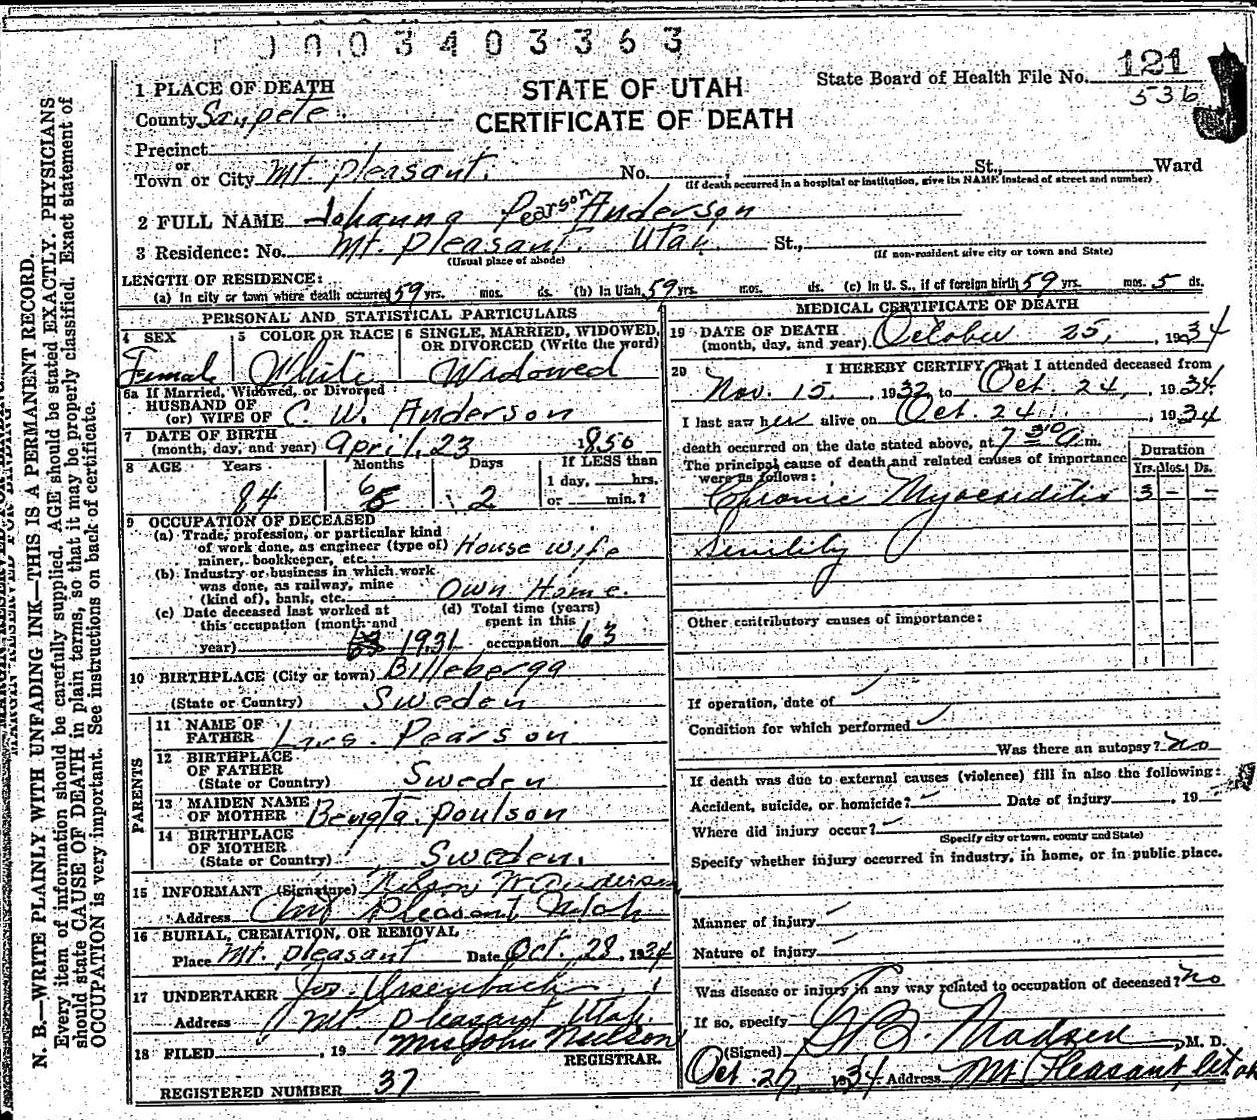 0003403363
STATE OF UTAH
CERTIFICATE OF DEATH
State Board of Health File No. 121
536
1 PLACE OF DEATH
County Sanpete.
Precinct
or
Town or City Mt. Pleasant. No. , St., Ward
(If death occurred in a hospital or institution, give its NAME instead of street and number)
2 FULL NAME Johanna Pearson Anderson
3 Residence: No. Mt. Pleasant. Utah. St.,
(Usual place of abode) (If non-resident give city or town and State)
LENGTH OF RESIDENCE:
(a) In city or town where death occurred 59 yrs. mos. ds. (b) In Utah 59 yrs. mos. ds. (c) In U. S., if of foreign birth 59 yrs. mos. 5 ds.
PERSONAL AND STATISTICAL PARTICULARS
4 SEX
Female
5 COLOR OR RACE
White
6 SINGLE, MARRIED, WIDOWED, OR DIVORCED (Write the word)
Widowed
6a If Married, Widowed, or Divorced
HUSBAND OF
(or) WIFE OF C. W. Anderson
7 DATE OF BIRTH
(month, day, and year) April. 23 1850
8 AGE Years Months Days If LESS than
84 6 2 1 day, hrs.
or min.?
9 OCCUPATION OF DECEASED
(a) Trade, profession, or particular kind
of work done, as engineer (type of)
miner, bookkeeper, etc. House wife
(b) Industry or business in which work
was done, as railway, mine
(kind of), bank, etc. Own Home.
(c) Date deceased last worked at
this occupation (month and
year) 1931
(d) Total time (years)
spent in this
occupation 63
10 BIRTHPLACE (City or town) Billeberga
(State or Country) Sweden
PARENTS
11 NAME OF
FATHER Lars. Pearson
12 BIRTHPLACE
OF FATHER
(State or Country) Sweden
13 MAIDEN NAME
OF MOTHER Bengta. Poulson
14 BIRTHPLACE
OF MOTHER
(State or Country) Sweden.
15 INFORMANT (Signature) Nelson W Anderson
Address Mt Pleasant Utah
16 BURIAL, CREMATION, OR REMOVAL
Place Mt. Pleasant Date Oct. 28, 1934
17 UNDERTAKER Jos. Ursenbach
Address Mt Pleasant Utah.
18 FILED , 19 Mrs John Neilson
REGISTRAR.
REGISTERED NUMBER 37
MEDICAL CERTIFICATE OF DEATH
19 DATE OF DEATH
(month, day, and year) October 25, 1934
20 I HEREBY CERTIFY That I attended deceased from
Nov. 15, 1932 to Oct. 24, 1934.
I last saw her alive on Oct. 24, 1934
death occurred on the date stated above, at 7 30 a.m.
The principal cause of death and related causes of importance
were as follows:
Duration
Yrs. Mos. Ds.
Chronic Myocarditis 3 - -
Senility
Other contributory causes of importance:
If operation, date of
Condition for which performed
Was there an autopsy? no
If death was due to external causes (violence) fill in also the following:
Accident, suicide, or homicide? Date of injury , 19
Where did injury occur?
(Specify city or town, county and State)
Specify whether injury occurred in industry, in home, or in public place.
Manner of injury
Nature of injury
Was disease or injury in any way related to occupation of deceased? no
If so, specify
(Signed) Madsen, M. D.
Oct. 27, 1934 Address Mt Pleasant, Utah
N. B.—WRITE PLAINLY WITH UNFADING INK—THIS IS A PERMANENT RECORD.
Every item of information should be carefully supplied. AGE should be stated EXACTLY. PHYSICIANS
should state CAUSE OF DEATH in plain terms, so that it may be properly classified. Exact statement of
OCCUPATION is very important. See instructions on back of certificate.